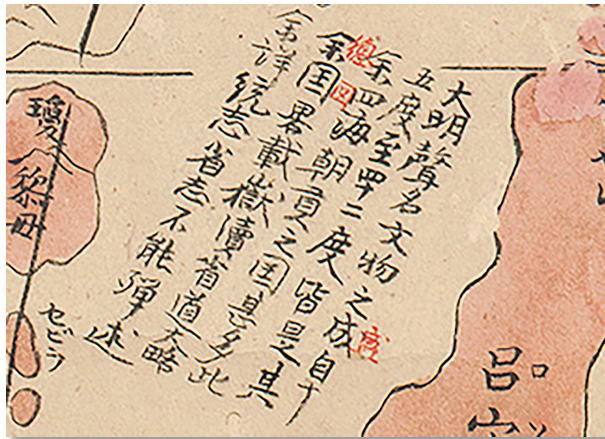 大明聲名文物之成自十
盛
五度至四十二度皆是其
余四海朝貢之国甚多此
總
余国畧載嶽瀆省道大略
図
余詳統志省志不能殫述
瓊
黎母
呂宋
ロソ